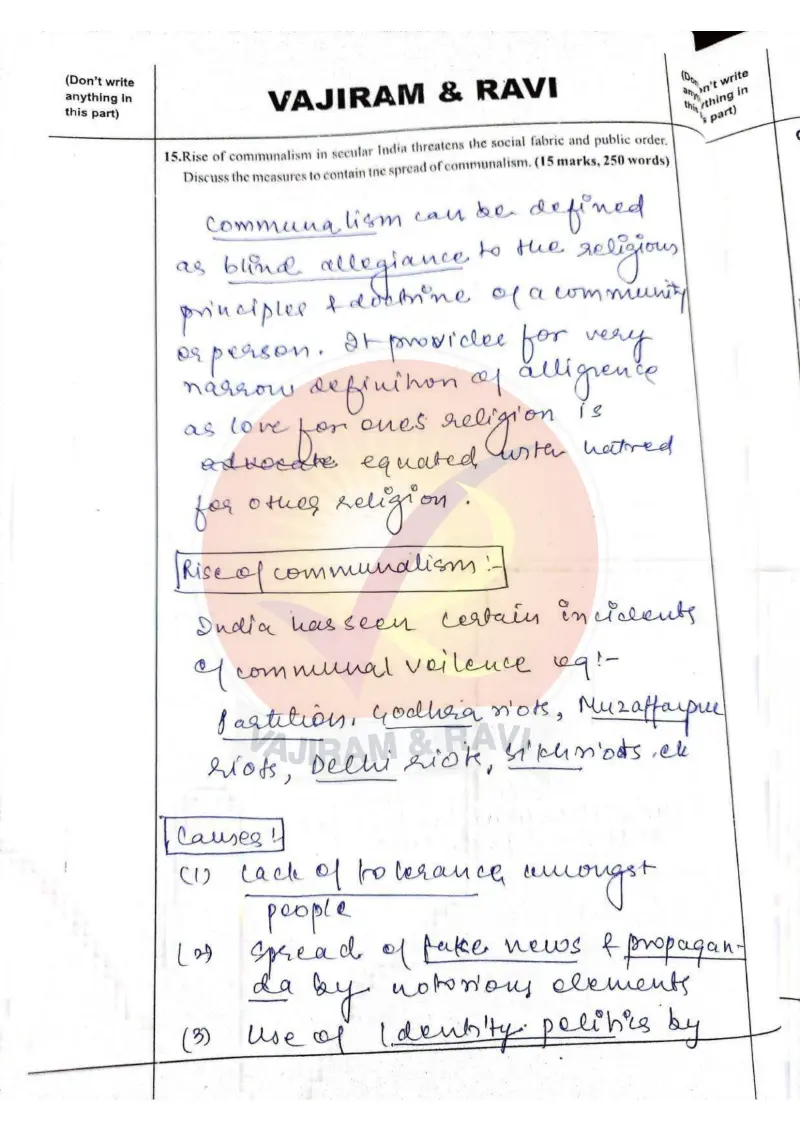 (Don't write
anything in
this part)
VAJIRAM & RAVI
(Don't write
anything in
this part)
15.Rise of communalism in secular India threatens the social fabric and public order.
Discuss the measures to contain the spread of communalism. (15 marks, 250 words)
Communalism can be defined
as blind allegiance to the religious
principles & doctrine of a community
or person. It provides for very
narrow definition of alligience
as love for ones religion is
advocate equated with hatred
for other religion.
Rise of communalism :-
India has seen certain incidents
of communal voilence eg:-
Partition, Godhra riots, Muzaffarpur
riots, Delhi riots, sikh riots .etc
VAJIRAM & RAVI
Causes :-
(1) Lack of tolerance amongst
people
(2) Spread of fake news & propagan-
da by notorious elements
(3) Use of Identity politics by